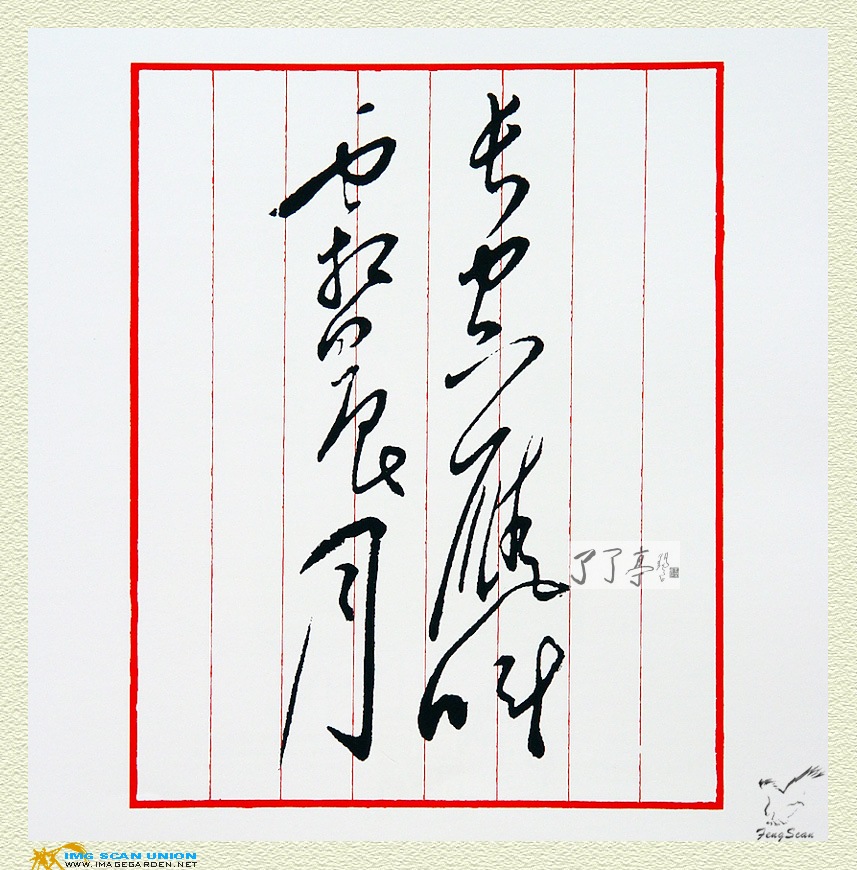 长空雁叫
霜晨月
了了亭
FengScan
IMG SCAN UNION
WWW.IMAGEGARDEN.NET